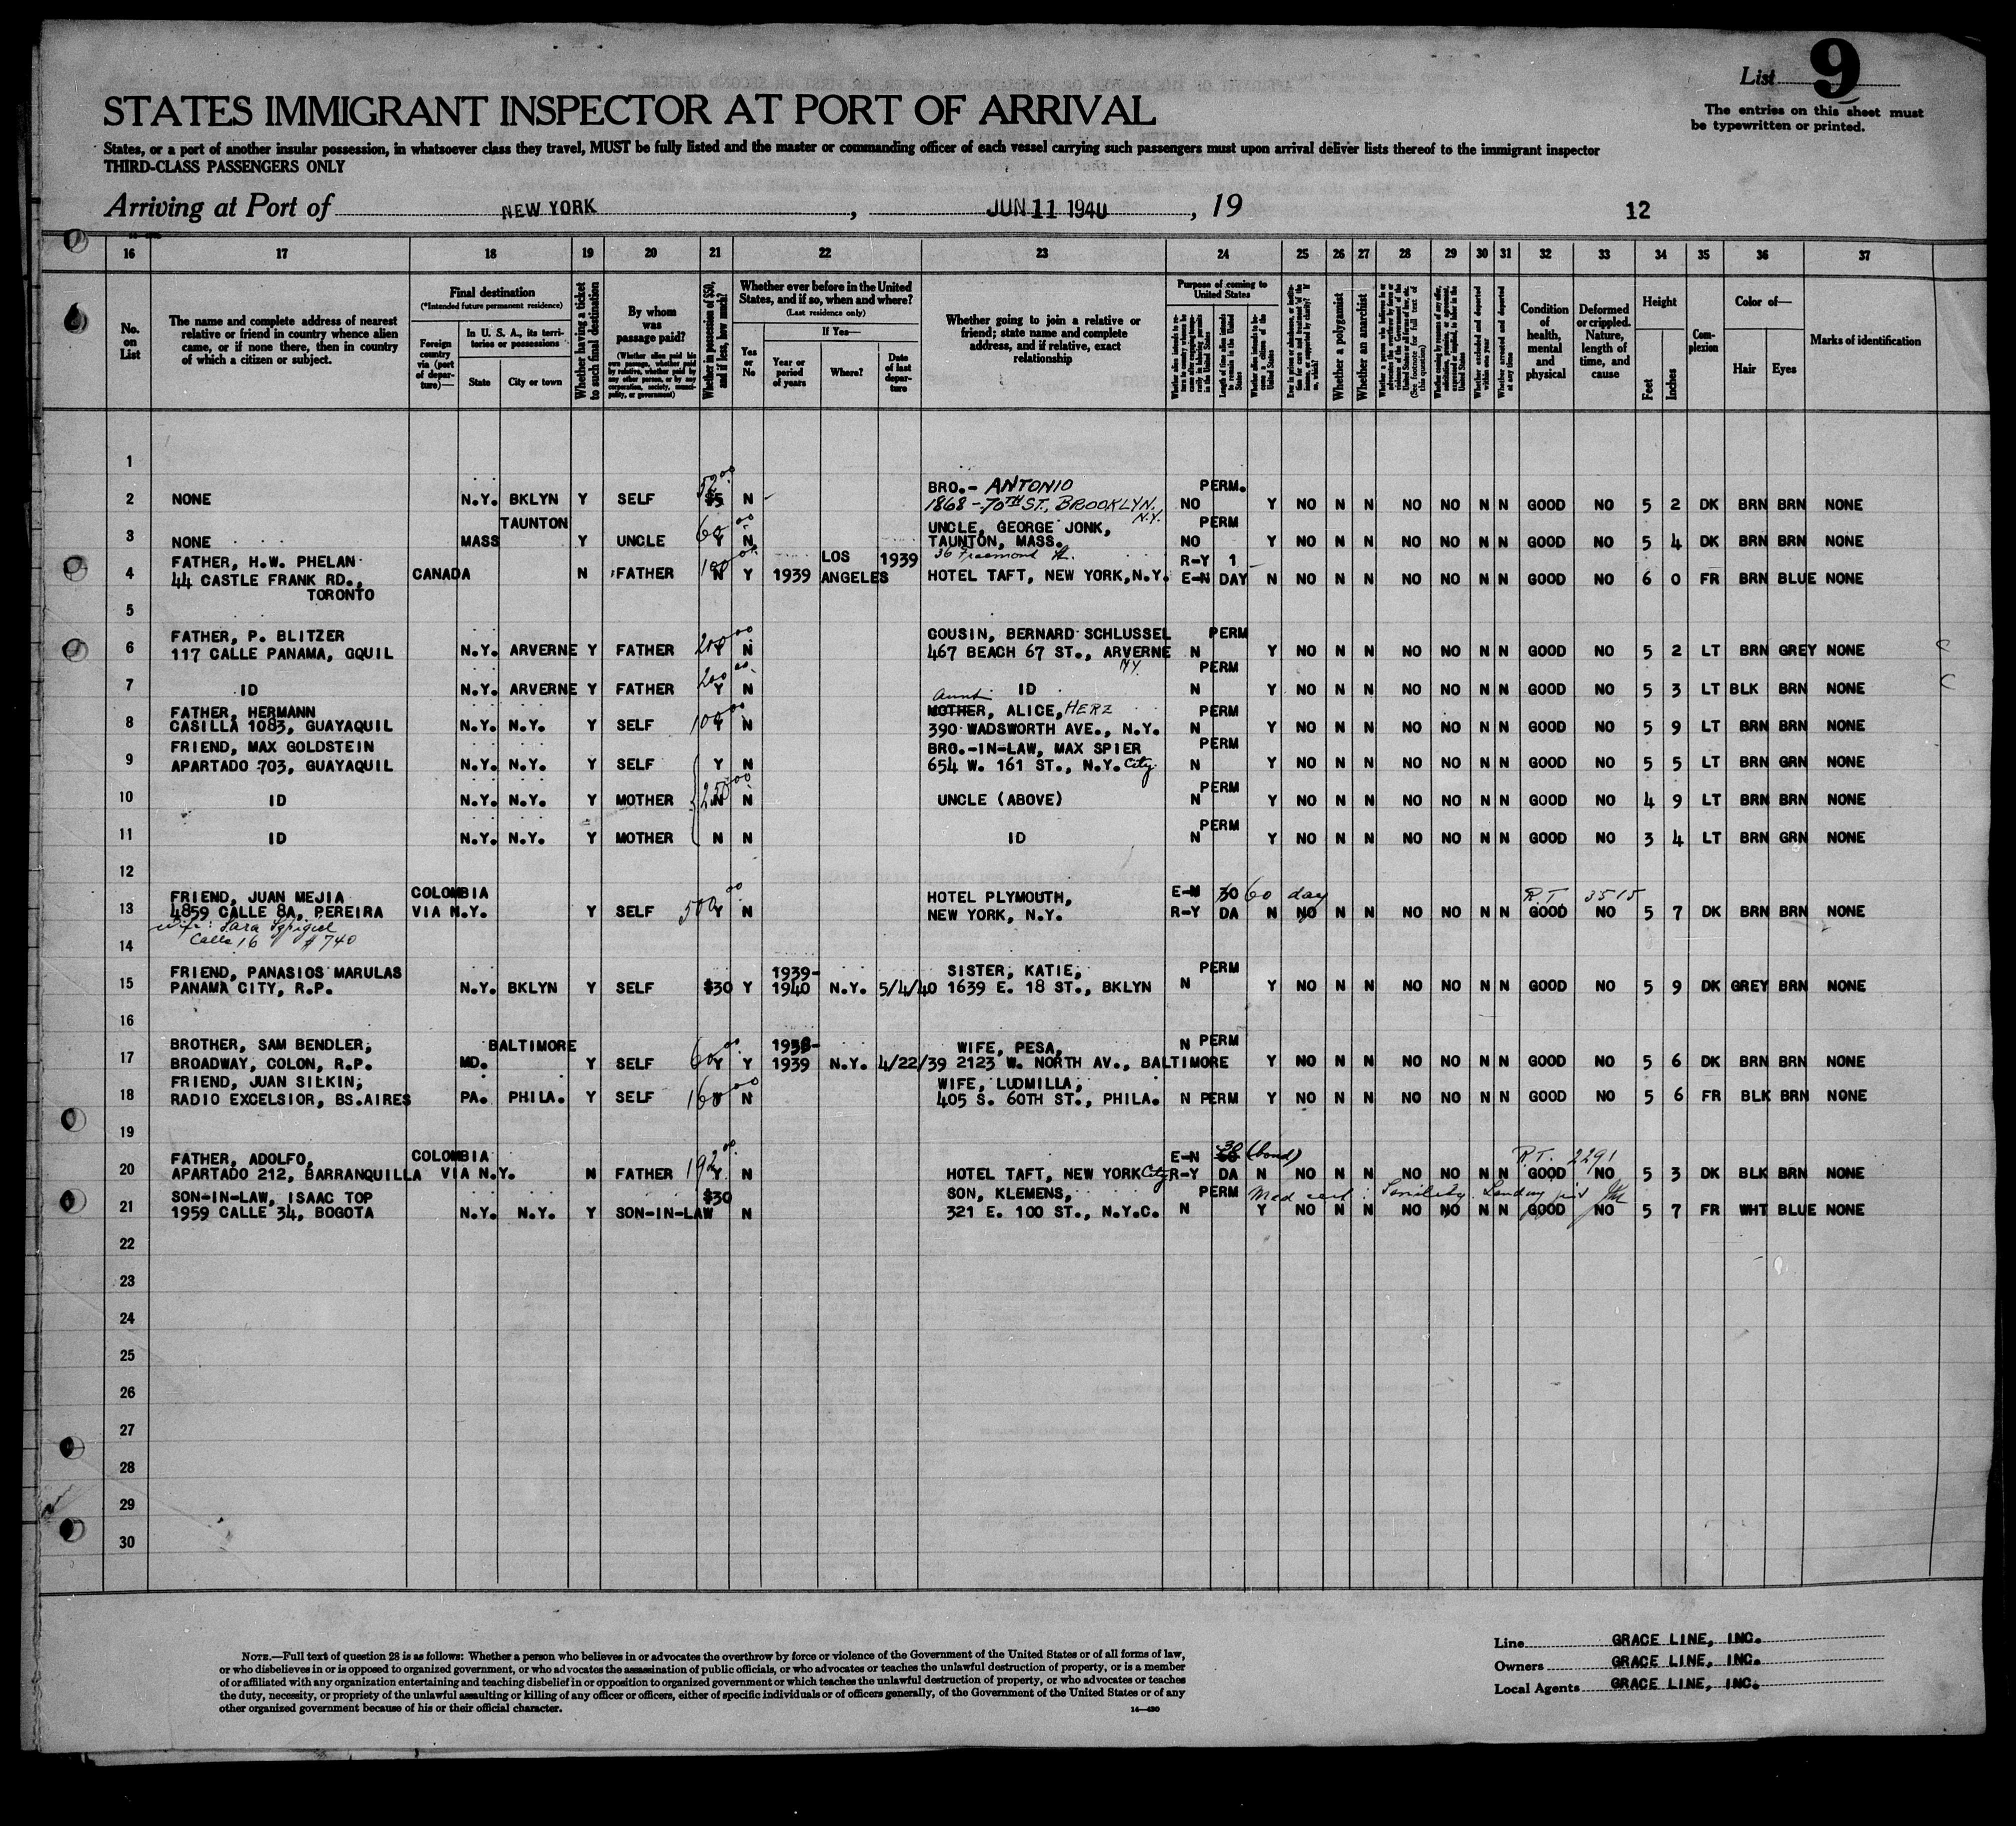 List 9
The entries on this sheet must
be typewritten or printed.
STATES IMMIGRANT INSPECTOR AT PORT OF ARRIVAL
States, or a port of another insular possession, in whatsoever class they travel, MUST be fully listed and the master or commanding officer of each vessel carrying such passengers must upon arrival deliver lists thereof to the immigrant inspector
THIRD-CLASS PASSENGERS ONLY
Arriving at Port of NEW YORK, JUN 11 1940, 19
12
16 17 18 19 20 21 22 23 24 25 26 27 28 29 30 31 32 33 34 35 36 37
No. on List
The name and complete address of nearest relative or friend in country whence alien came, or if none there, then in country of which a citizen or subject.
Final destination
(*Intended future permanent residence)
Foreign country via (port of departure)—
In U. S. A., its territories or possessions
State
City or town
Whether having a ticket to such final destination
By whom was passage paid?
(Whether alien paid his own passage, whether paid by relative, whether paid by any other person, or by any corporation, society, municipality, or government)
Whether in possession of $50, and if less, how much?
Whether ever before in the United States, and if so, when and where?
(Last residence only)
Yes or No
If Yes—
Year or period of years
Where?
Date of last departure
Whether going to join a relative or friend; state name and complete address, and if relative, exact relationship
Purpose of coming to United States
Whether a polygamist
Whether an anarchist
Condition of health, mental and physical
Deformed or crippled. Nature, length of time, and cause
Height
Feet
Inches
Complexion
Color of—
Hair
Eyes
Marks of identification
1
BRO.- ANTONIO PERM.
2 NONE N.Y. BKLYN Y SELF $5 52 00 N 1868-70TH ST., BROOKLYN. N.Y. NO Y NO N N NO NO N N GOOD NO 5 2 DK BRN BRN NONE
TAUNTON UNCLE, GEORGE JONK, PERM
3 NONE MASS Y UNCLE Y N TAUNTON, MASS. NO Y NO N N NO NO N N GOOD NO 5 4 DK BRN BRN NONE
FATHER, H.W. PHELAN LOS 1939 R-Y 1
4 44 CASTLE FRANK RD., CANADA N FATHER N Y 1939 ANGELES HOTEL TAFT, NEW YORK, N.Y. E-N DAY N NO N N NO NO N N GOOD NO 6 0 FR BRN BLUE NONE
TORONTO
5
FATHER, P. BLITZER COUSIN, BERNARD SCHLUSSEL PERM
6 117 CALLE PANAMA, GQUIL N.Y. ARVERNE Y FATHER 200 00 Y N 467 BEACH 67 ST., ARVERNE NY. N Y NO N N NO NO N N GOOD NO 5 2 LT BRN GREY NONE C
PERM
7 ID N.Y. ARVERNE Y FATHER 200 00 Y N ID N Y NO N N NO NO N N GOOD NO 5 3 LT BLK BRN NONE C
Aunt
FATHER, HERMANN MOTHER, ALICE, HERZ PERM
8 CASILLA 1083, GUAYAQUIL N.Y. N.Y. Y SELF Y N 390 WADSWORTH AVE., N.Y. N Y NO N N NO NO N N GOOD NO 5 9 LT BRN BRN NONE
FRIEND, MAX GOLDSTEIN BRO.-IN-LAW, MAX SPIER PERM
9 APARTADO 703, GUAYAQUIL N.Y. N.Y. Y SELF Y N 654 W. 161 ST., N.Y. City N Y NO N N NO NO N N GOOD NO 5 5 LT BRN GRN NONE
PERM
10 ID N.Y. N.Y. Y MOTHER 250 00 N N UNCLE (ABOVE) N Y NO N N NO NO N N GOOD NO 4 9 LT BRN BRN NONE
PERM
11 ID N.Y. N.Y. Y MOTHER N N ID N Y NO N N NO NO N N GOOD NO 3 4 LT BRN GRN NONE
12
FRIEND, JUAN MEJIA COLOMBIA HOTEL PLYMOUTH, E-N 30 60 day R.T. 3515
13 4859 CALLE 8A, PEREIRA VIA N.Y. Y SELF 500 00 Y N NEW YORK, N.Y. R-Y DA N NO N N NO NO N N GOOD NO 5 7 DK BRN BRN NONE
wife: Sara
Calle 16 #740
14
FRIEND, PANASIOS MARULAS 1939- SISTER, KATIE, PERM
15 PANAMA CITY, R.P. N.Y. BKLYN Y SELF $30 Y 1940 N.Y. 5/4/40 1639 E. 18 ST., BKLYN N Y NO N N NO NO N N GOOD NO 5 9 DK GREY BRN NONE
16
BROTHER, SAM BENDLER, BALTIMORE WIFE, PESA, N PERM
17 BROADWAY, COLON, R.P. MD. Y SELF 60 00 Y Y 1939 N.Y. 4/22/39 2123 W. NORTH AV., BALTIMORE Y NO N N NO NO N N GOOD NO 5 6 DK BRN BRN NONE
FRIEND, JUAN SILKIN, WIFE, LUDMILLA,
18 RADIO EXCELSIOR, BS.AIRES PA. PHILA. Y SELF 160 00 N 405 S. 60TH ST., PHILA. N PERM Y NO N N NO NO N N GOOD NO 5 6 FR BLK BRN NONE
19
FATHER, ADOLFO, COLOMBIA E-N 30 (bond) R.T. 2291
20 APARTADO 212, BARRANQUILLA VIA N.Y. N FATHER 192 Y N HOTEL TAFT, NEW YORK City R-Y DA N NO N N NO NO N N GOOD NO 5 3 DK BLK BRN NONE
SON-IN-LAW, ISAAC TOP $30 SON, KLEMENS, PERM Med cert: Senility.
21 1959 CALLE 34, BOGOTA N.Y. N.Y. Y SON-IN-LAW N 321 E. 100 ST., N.Y.C. N Y NO N N NO NO N N GOOD NO 5 7 FR WHT BLUE NONE
22
23
24
25
26
27
28
29
30
NOTE.—Full text of question 28 is as follows: Whether a person who believes in or advocates the overthrow by force or violence of the Government of the United States or of all forms of law,
or who disbelieves in or is opposed to organized government, or who advocates the assassination of public officials, or who advocates or teaches the unlawful destruction of property, or is a member
of or affiliated with any organization entertaining and teaching disbelief in or opposition to organized government or which teaches the unlawful destruction of property, or who advocates or teaches
the duty, necessity, or propriety of the unlawful assaulting or killing of any officer or officers, either of specific individuals or of officers generally, of the Government of the United States or of any
other organized government because of his or their official character.
14—430
Line GRACE LINE, INC.
Owners GRACE LINE, INC.
Local Agents GRACE LINE, INC.